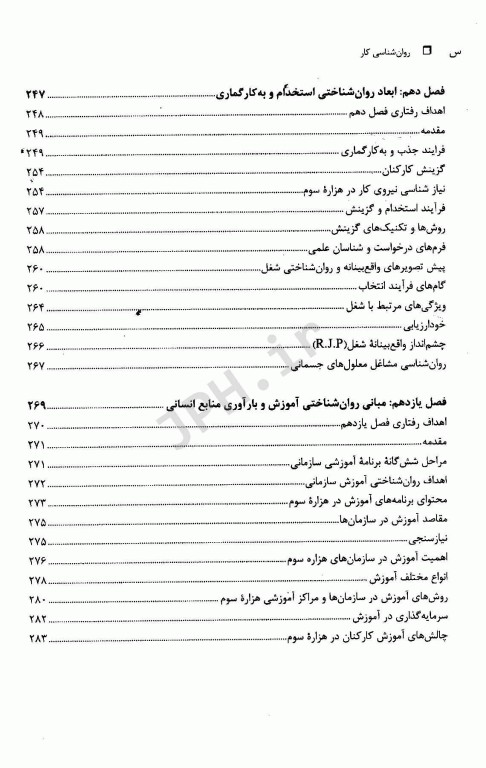 س ❒ روان‌شناسی کار
فصل دهم: ابعاد روان‌شناختی استخدام و به‌کارگماری ........ ۲۴۷
اهداف رفتاری فصل دهم ........ ۲۴۸
مقدمه ........ ۲۴۹
فرایند جذب و به‌کارگماری ........ ۲۴۹
گزینش کارکنان ........ ۲۵۴
نیاز شناسی نیروی کار در هزارهٔ سوم ........ ۲۵۴
فرآیند استخدام و گزینش ........ ۲۵۷
روش‌ها و تکنیک‌های گزینش ........ ۲۵۸
فرم‌های درخواست و شناسان علمی ........ ۲۵۸
پیش تصویرهای واقع‌بینانه و روان‌شناختی شغل ........ ۲۶۰
گام‌های فرآیند انتخاب ........ ۲۶۰
ویژگی‌های مرتبط با شغل ........ ۲۶۴
خودارزیابی ........ ۲۶۵
چشم‌انداز واقع‌بینانهٔ شغل(R.J.P) ........ ۲۶۶
روان‌شناسی مشاغل معلول‌های جسمانی ........ ۲۶۷
فصل یازدهم: مبانی روان‌شناختی آموزش و بارآوری منابع انسانی ........ ۲۶۹
اهداف رفتاری فصل یازدهم ........ ۲۷۰
مقدمه ........ ۲۷۱
مراحل شش‌گانهٔ برنامهٔ آموزشی سازمانی ........ ۲۷۱
اهداف روان‌شناختی آموزش سازمانی ........ ۲۷۲
محتوای برنامه‌های آموزش در هزارهٔ سوم ........ ۲۷۳
مقاصد آموزش در سازمان‌ها ........ ۲۷۵
نیازسنجی ........ ۲۷۵
اهمیت آموزش در سازمان‌های هزاره سوم ........ ۲۷۶
انواع مختلف آموزش ........ ۲۷۸
روش‌های آموزش در سازمان‌ها و مراکز آموزشی هزارهٔ سوم ........ ۲۸۰
سرمایه‌گذاری در آموزش ........ ۲۸۲
چالش‌های آموزش کارکنان در هزارهٔ سوم ........ ۲۸۳
JPH.ir